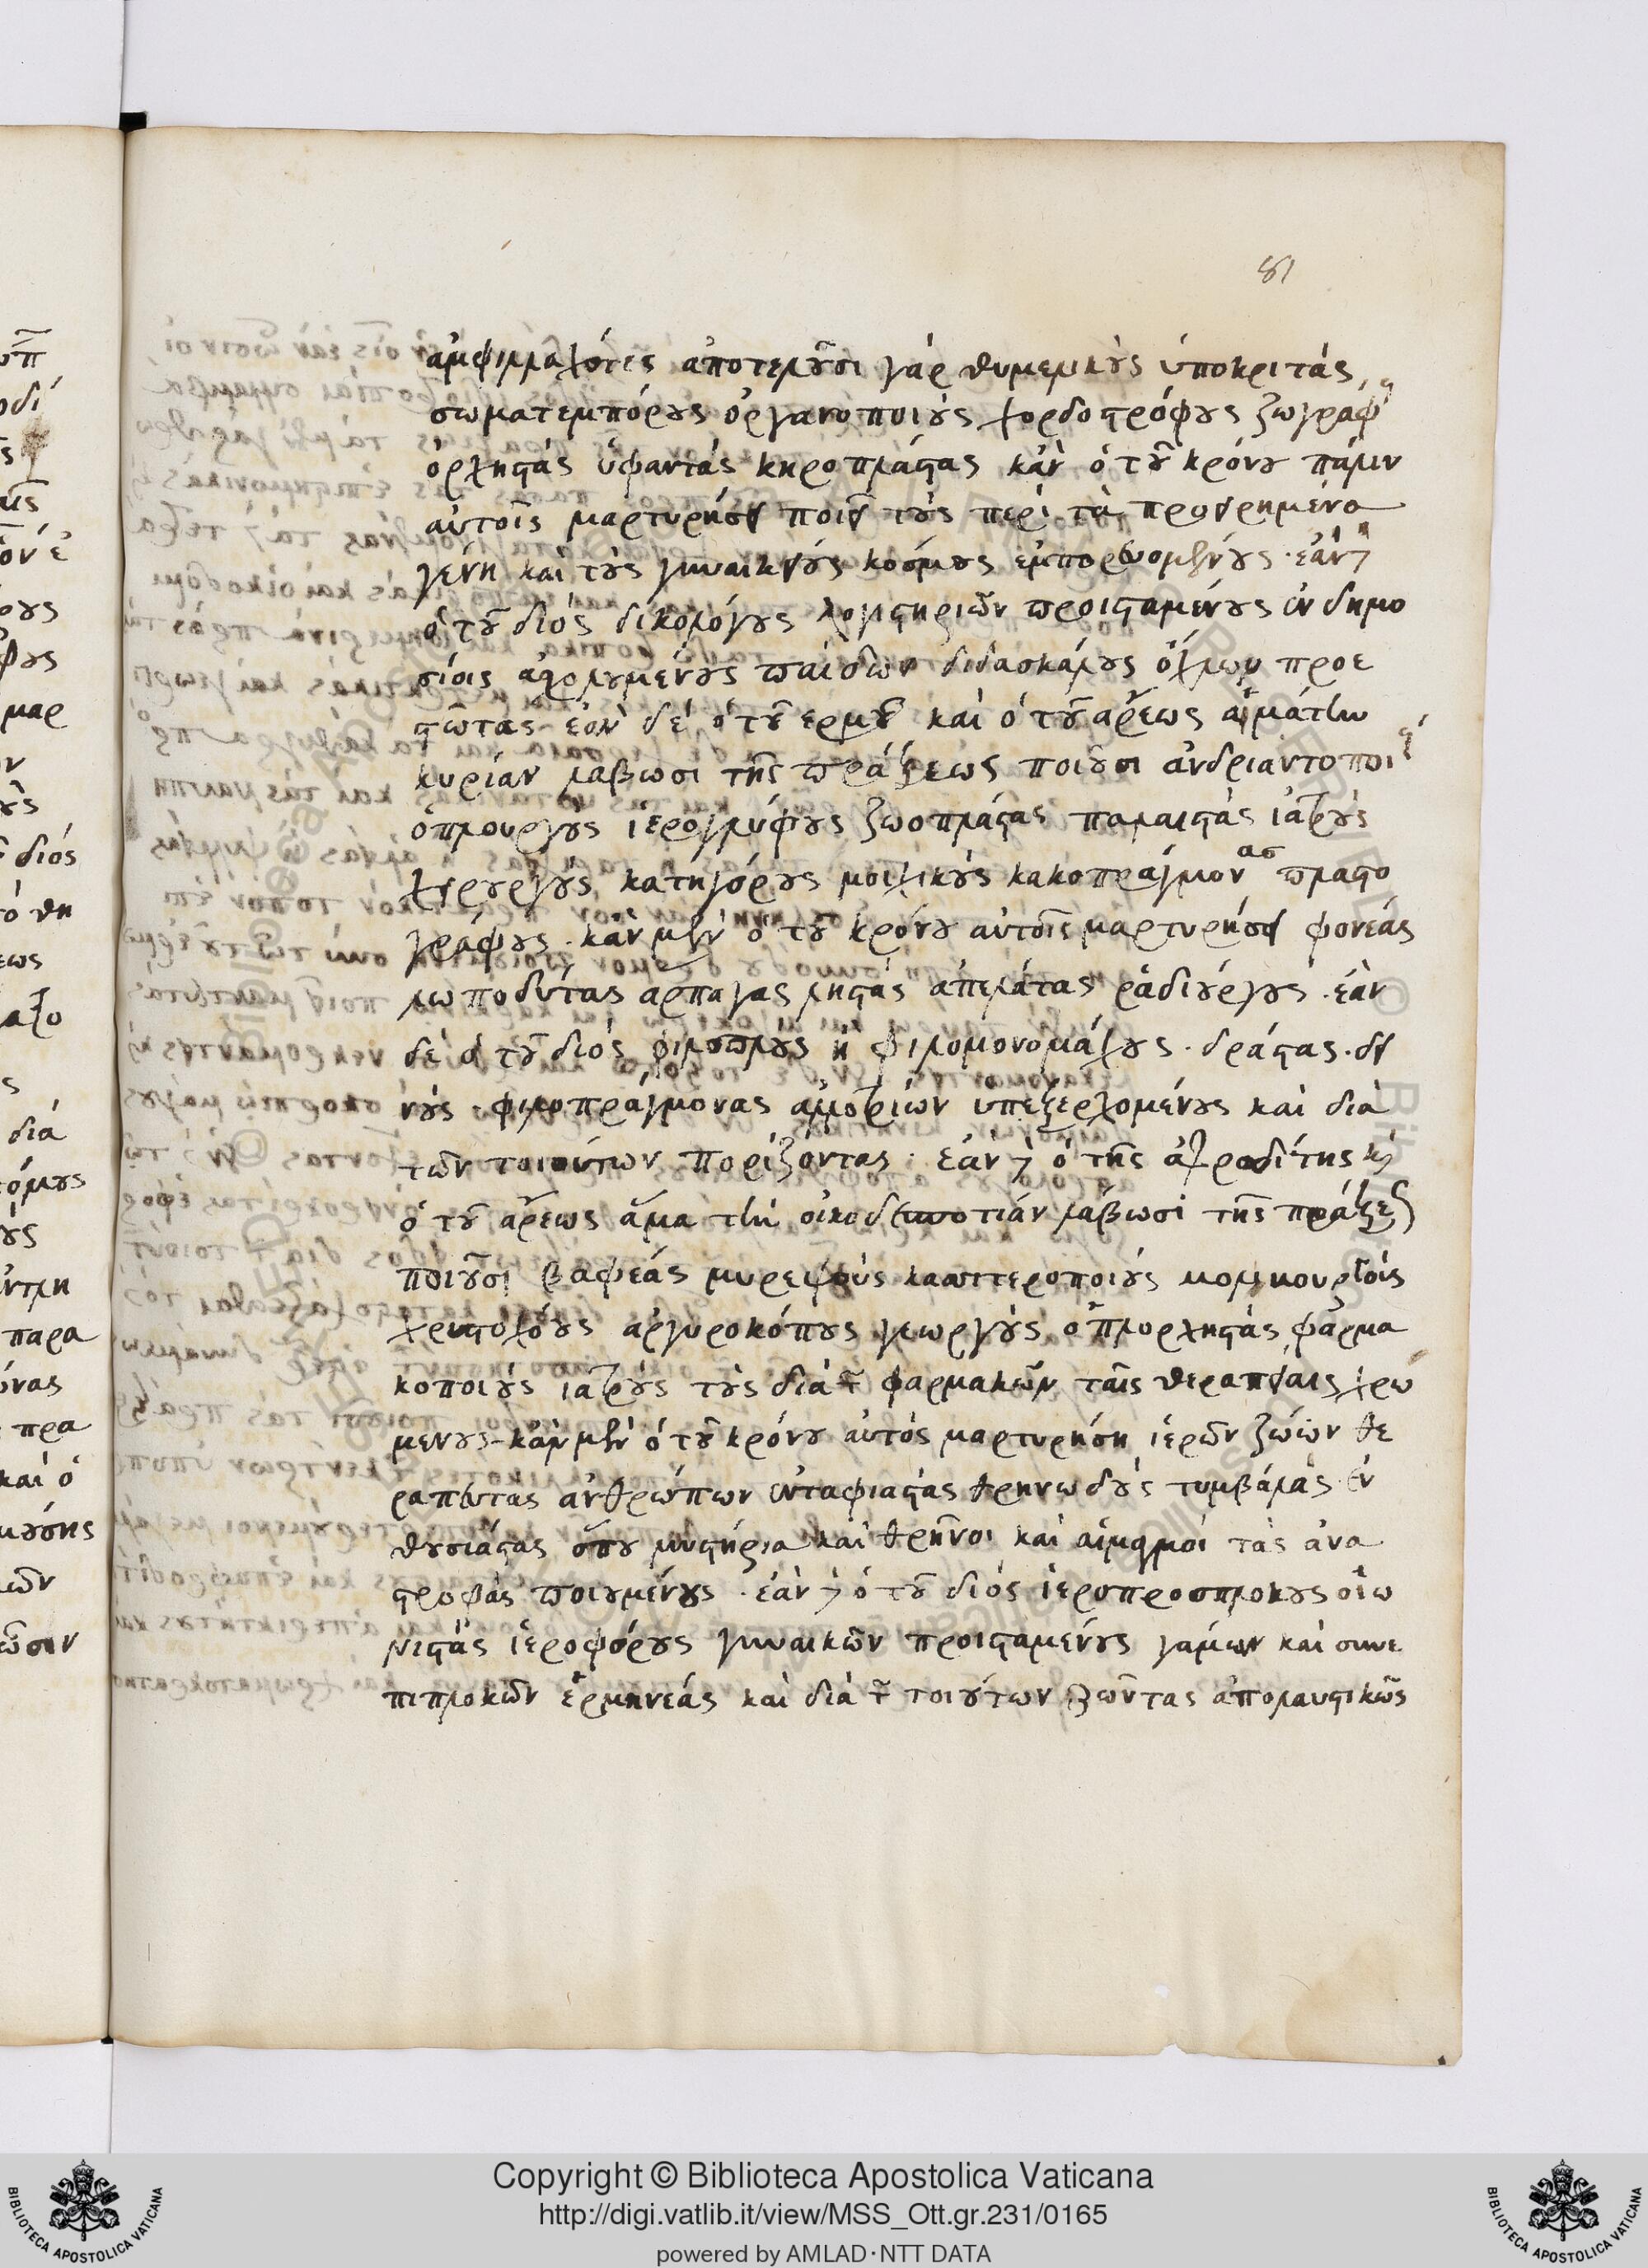 81
ἀμφιλλαχότες ἀποτελοῦσι γὰρ θυμελικοὺς ὑποκριτάς
σωματεμπόρους ὀργανοποιοὺς χορδοστρόφους ζωγράφ
ὀρχηστὰς ὑφαντάς κηροπλάστας κἂν ὁ τοῦ κρόνου πάλιν
αὐτοῖς μαρτυρήσει ποιεῖ τοὺς περὶ τὰ προειρημένα
γένη καὶ τοὺς γυναικείους κόσμους ἐμπορευομένους · ἐὰν δὲ
ὁ τοῦ διός δικολόγους λογιστηρίων προισταμένους ἐν δημο
σίοις ἀσχολουμένους παίδων διδασκάλους ὄχλων προε
στῶτας ἐὰν δὲ ὁ τοῦ ερμοῦ καὶ ὁ τοῦ ἄρεως ἅμα τὴν
κυρίαν λαβωσι τῆς πράξεως ποιοῦσι ἀνδριαντοποι
ὁπλουργοὺς ἱερογλύφους ζωοπλάστας παλαιστὰς ἰατροὺς
χειρουργοὺς κατηγόρους μοιχικοὺς κακοπράγμονας πλαστο
γράφους · κἂν μὲν ὁ τοῦ κρόνου αὐτοῖς μαρτυρήσει φονέας
λωποδύτας αρπαγας ληστὰς ἀπελάτας ῥᾳδιούργους · ἐὰν
δὲ ὁ τοῦ διός φιλόπλους ἢ φιλομονομάχους · δράστας · δει
νοὺς · φιλοπράγμονας ἀλλοτρίων ὑπεξερχομένους καὶ διὰ
τῶν τοιούτων πορίζοντας · ἐὰν δὲ ὁ τῆς ἀφροδίτης καὶ
ὁ τοῦ ἄρεως ἅμα τὴν οἰκοδεσποτιάν λάβωσι τῆς πράξεως
ποιοῦσι βαφεάς μυρεψοὺς κασσιτεροποιοὺς μολιβουργοὺς
χρυσοχόους ἀργυροκόπους γεωργοὺς ὁπλορχηστάς φαρμα
κοποιοὺς ἰατροὺς τοὺς διὰ τῶν φαρμακῶν ταῖς θεραπείαις χρω
μενους · κἂν μὲν ὁ τοῦ κρόνου αὐτὸς μαρτυρήσῃ ἱερῶν ζώων θε
ραπευτας ἀνθρώπων ἐνταφιαστάς θρηνωδοὺς τυμβάλας ἐν
θουσιάστας ὅπου μυστήρια καὶ θρῆνοι καὶ αἱμαγμοί τὰς ἀνα
στροφὰς ποιουμένους · ἐὰν δὲ ὁ τοῦ διός ἱεροπροσπλόκους οἰω
νιστὰς ἱεροφόρους γυναικῶν προισταμένους γάμων καὶ συνε
πιπλοκῶν ἑρμηνεάς καὶ διὰ τῶν τοιούτων ζῶντας ἀπολαυστικῶς
Copyright © Biblioteca Apostolica Vaticana
http://digi.vatlib.it/view/MSS_Ott.gr.231/0165
powered by AMLAD·NTT DATA
BIBLIOTECA APOSTOLICA VATICANA
BIBLIOTECA APOSTOLICA VATICANA